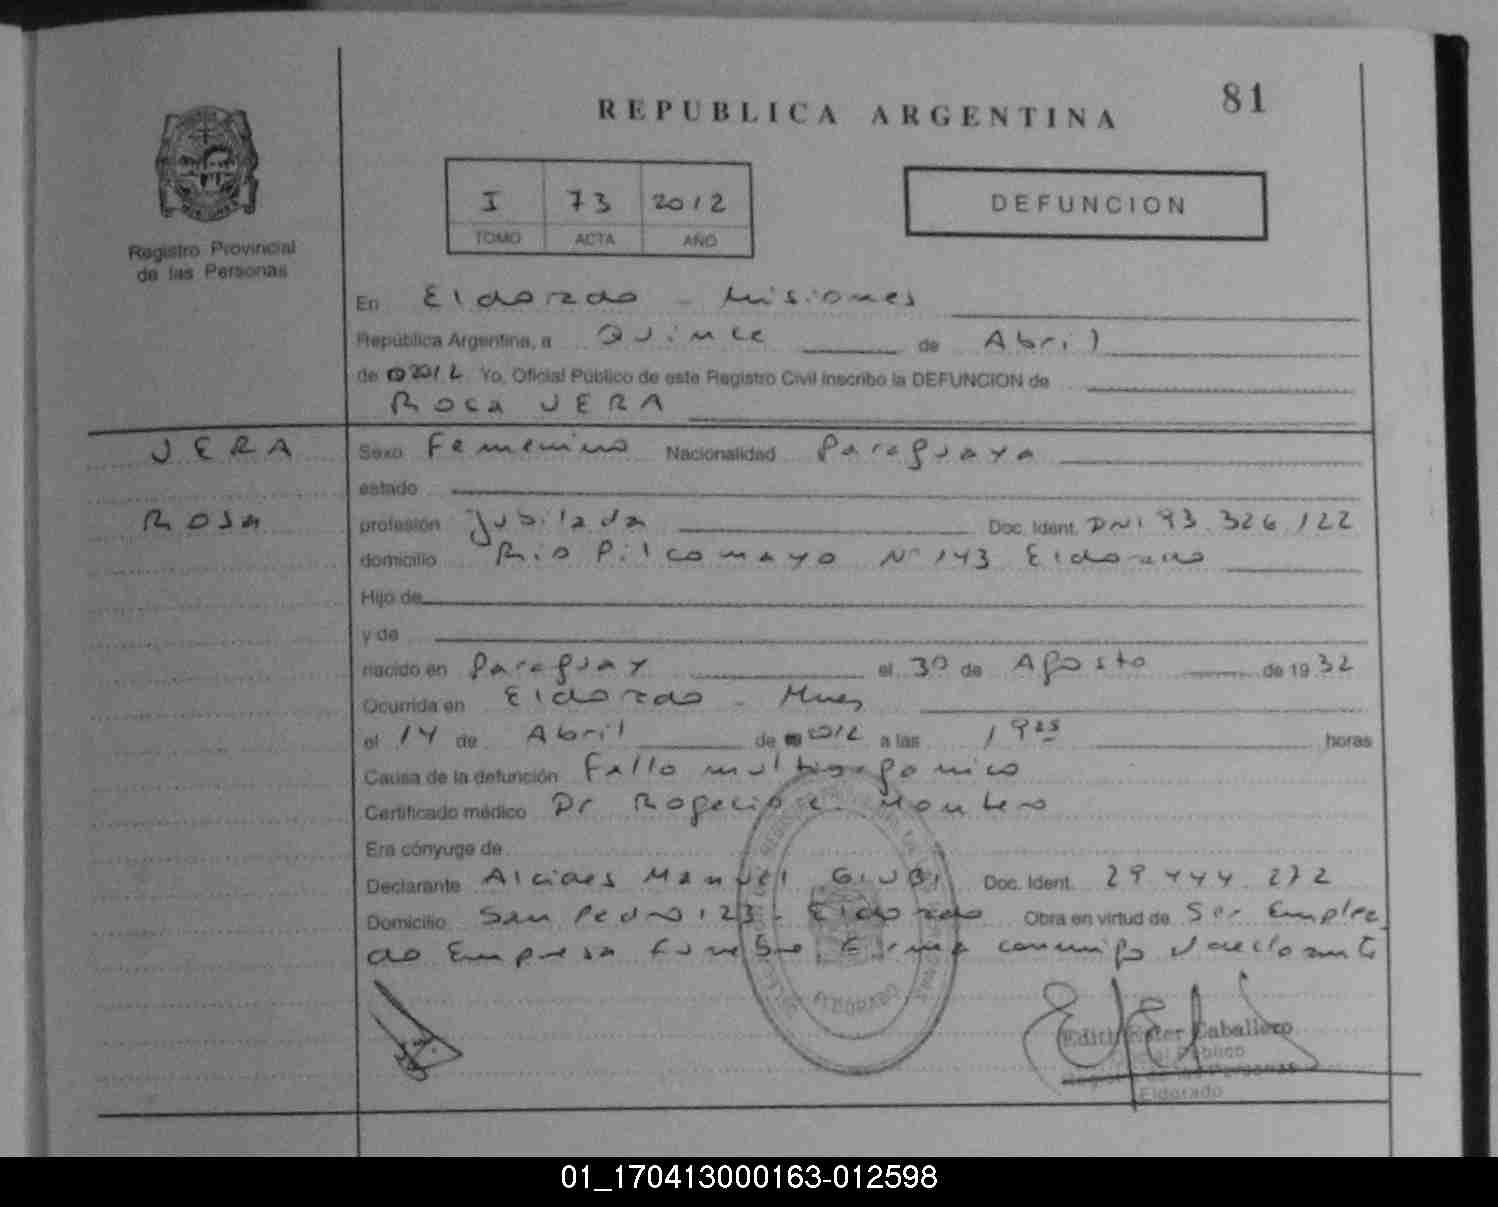 REPUBLICA ARGENTINA
81
I 73 2012
TOMO ACTA AÑO
DEFUNCION
Registro Provincial
de las Personas
En Eldorado - Misiones
República Argentina, a Quince de Abril
de 2012 Yo, Oficial Público de este Registro Civil inscribo la DEFUNCION de
Rosa VERA
VERA
Rosa
Sexo Femenino Nacionalidad Paraguaya
estado
profesión Jubilada Doc. Ident. DNI 93.326.122
domicilio Rio Pilcomayo Nº 143 Eldorado
Hijo de
y de
nacido en Paraguay el 30 de Agosto de 1932
Ocurrida en Eldorado - Mnes
el 14 de Abril de 2012 a las 19 25 horas
Causa de la defunción Fallo multiorgonico
Certificado médico Dr Rogelio Montero
Era cónyuge de
Declarante Alcides Manuel Doc. Ident. 29.444.272
Domicilio San Pedro 123 - Eldorado Obra en virtud de Ser Emplea
do Empresa Funebre Firma conmigo declarante
ELDORADO
Edith Ester Caballero
Oficial Público
Registro de las Personas
Eldorado
01_170413000163-012598